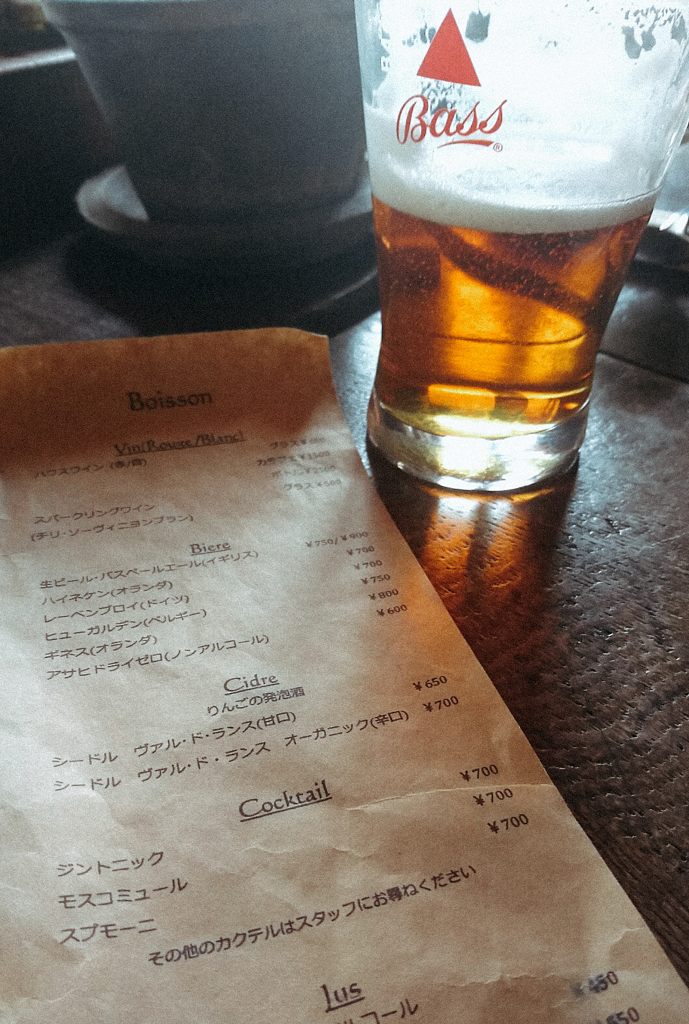 Bass
Boisson
Vin(Rouge/Blanc)
ハウスワイン (赤/白) グラス
カラフェ ¥1500
ボトル ¥2500
スパークリングワイン グラス ¥580
(チリ・ソーヴィニヨンブラン)
Biere
生ビール・バスペールエール(イギリス) ¥750/¥900
ハイネケン(オランダ) ¥700
レーベンブロイ(ドイツ) ¥700
ヒューガルデン(ベルギー) ¥750
ギネス(オランダ) ¥800
アサヒドライゼロ(ノンアルコール) ¥600
Cidre
りんごの発泡酒
シードル ヴァル・ド・ランス(甘口) ¥650
シードル ヴァル・ド・ランス オーガニック(辛口) ¥700
Cocktail
ジントニック ¥700
モスコミュール ¥700
スプモーニ ¥700
その他のカクテルはスタッフにお尋ねください
Jus
¥450
コール